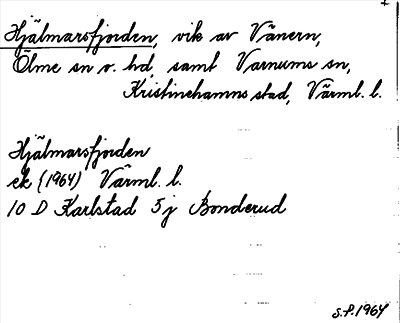 Hjälmarsfjorden, vik av Vänern,
Ölme sn o. hd, samt Varnums sn,
Kristinehamns stad, Värml. l.
Hjälmarsfjorden
ek (1964) Värml. l.
10 D Karlstad 5j Bonderud
S.P. 1964